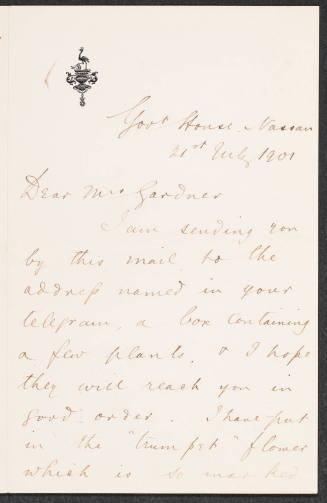 Govt House. Nassau
21st July, 1901
Dear Mrs Gardner
I am sending you
by this mail, to the
address named in your
telegram, a box containing
a few plants, & I hope
they will reach you in
good order. I have put
in the "trumpet" flower
which is so marked